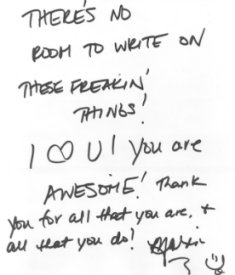 THERE'S NO
ROOM TO WRITE ON
THESE FREAKIN'
THINGS!
I ♡ U! you are
AWESOME! Thank
you for all that you are, +
all that you do!